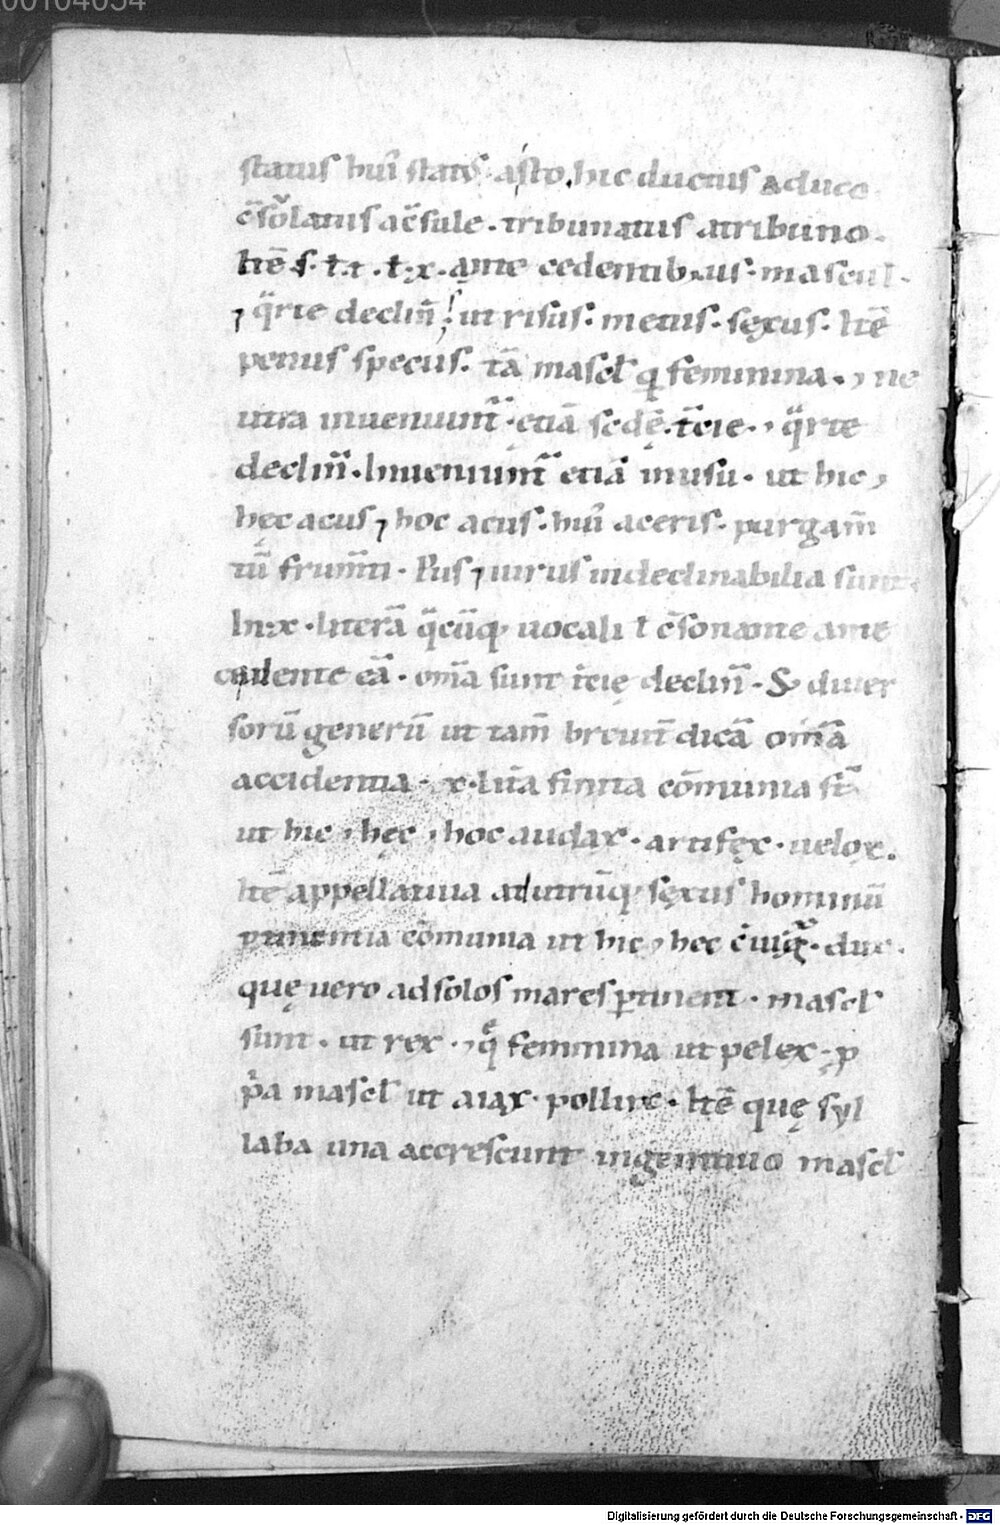 00104054
status huiꝰ statꝰ. a sto. hic ductus a duco
c̄solatus a c̄sule. tribunatus a tribuno.
Itē s. ł. t. ł. x. ante cedentibus. mascul.
⁊ q̈rte declin̄. ut risus. metus. sexus. Itē
penus specus. tā mascł q̄ feminina. ⁊ ne
utra inueniunt̄. etiā scdę. t̄cie. ⁊ q̈rte
declin̄. Inueniunt̄ etiā in usu. ut hic ⁊
hęc acus ⁊ hoc acus. huiꝰ aceris. purgam̄
tū frum̄ti. Pus ⁊ uirus indeclinabilia sunt.
In. x. literā q̄cūq; uocali ł c̄sonante ante
cedente eā. om̄a sunt t̄cię declin̄. S; diuer
sorū generū ut tam̄ breuit̄ dicā om̄a
accidentia. x. lit̄a finita cōmunia st̄
ut hic ⁊ hęc ⁊ hoc audax. artifex. uelox.
Itē appellatiua ad utrūq; sexus hominū
ꝑtinentia cōmunia ut hic ⁊ hec c̄iux. dux.
quę uero ad solos mares ꝑtinent. mascł
sunt. ut rex. ⁊ q̄ feminina ut pelex. ꝓ
pͥa mascł ut aiax. pollux. Itē quę syl
laba una accrescunt in genitiuo mascł
Digitalisierung gefördert durch die Deutsche Forschungsgemeinschaft - DFG